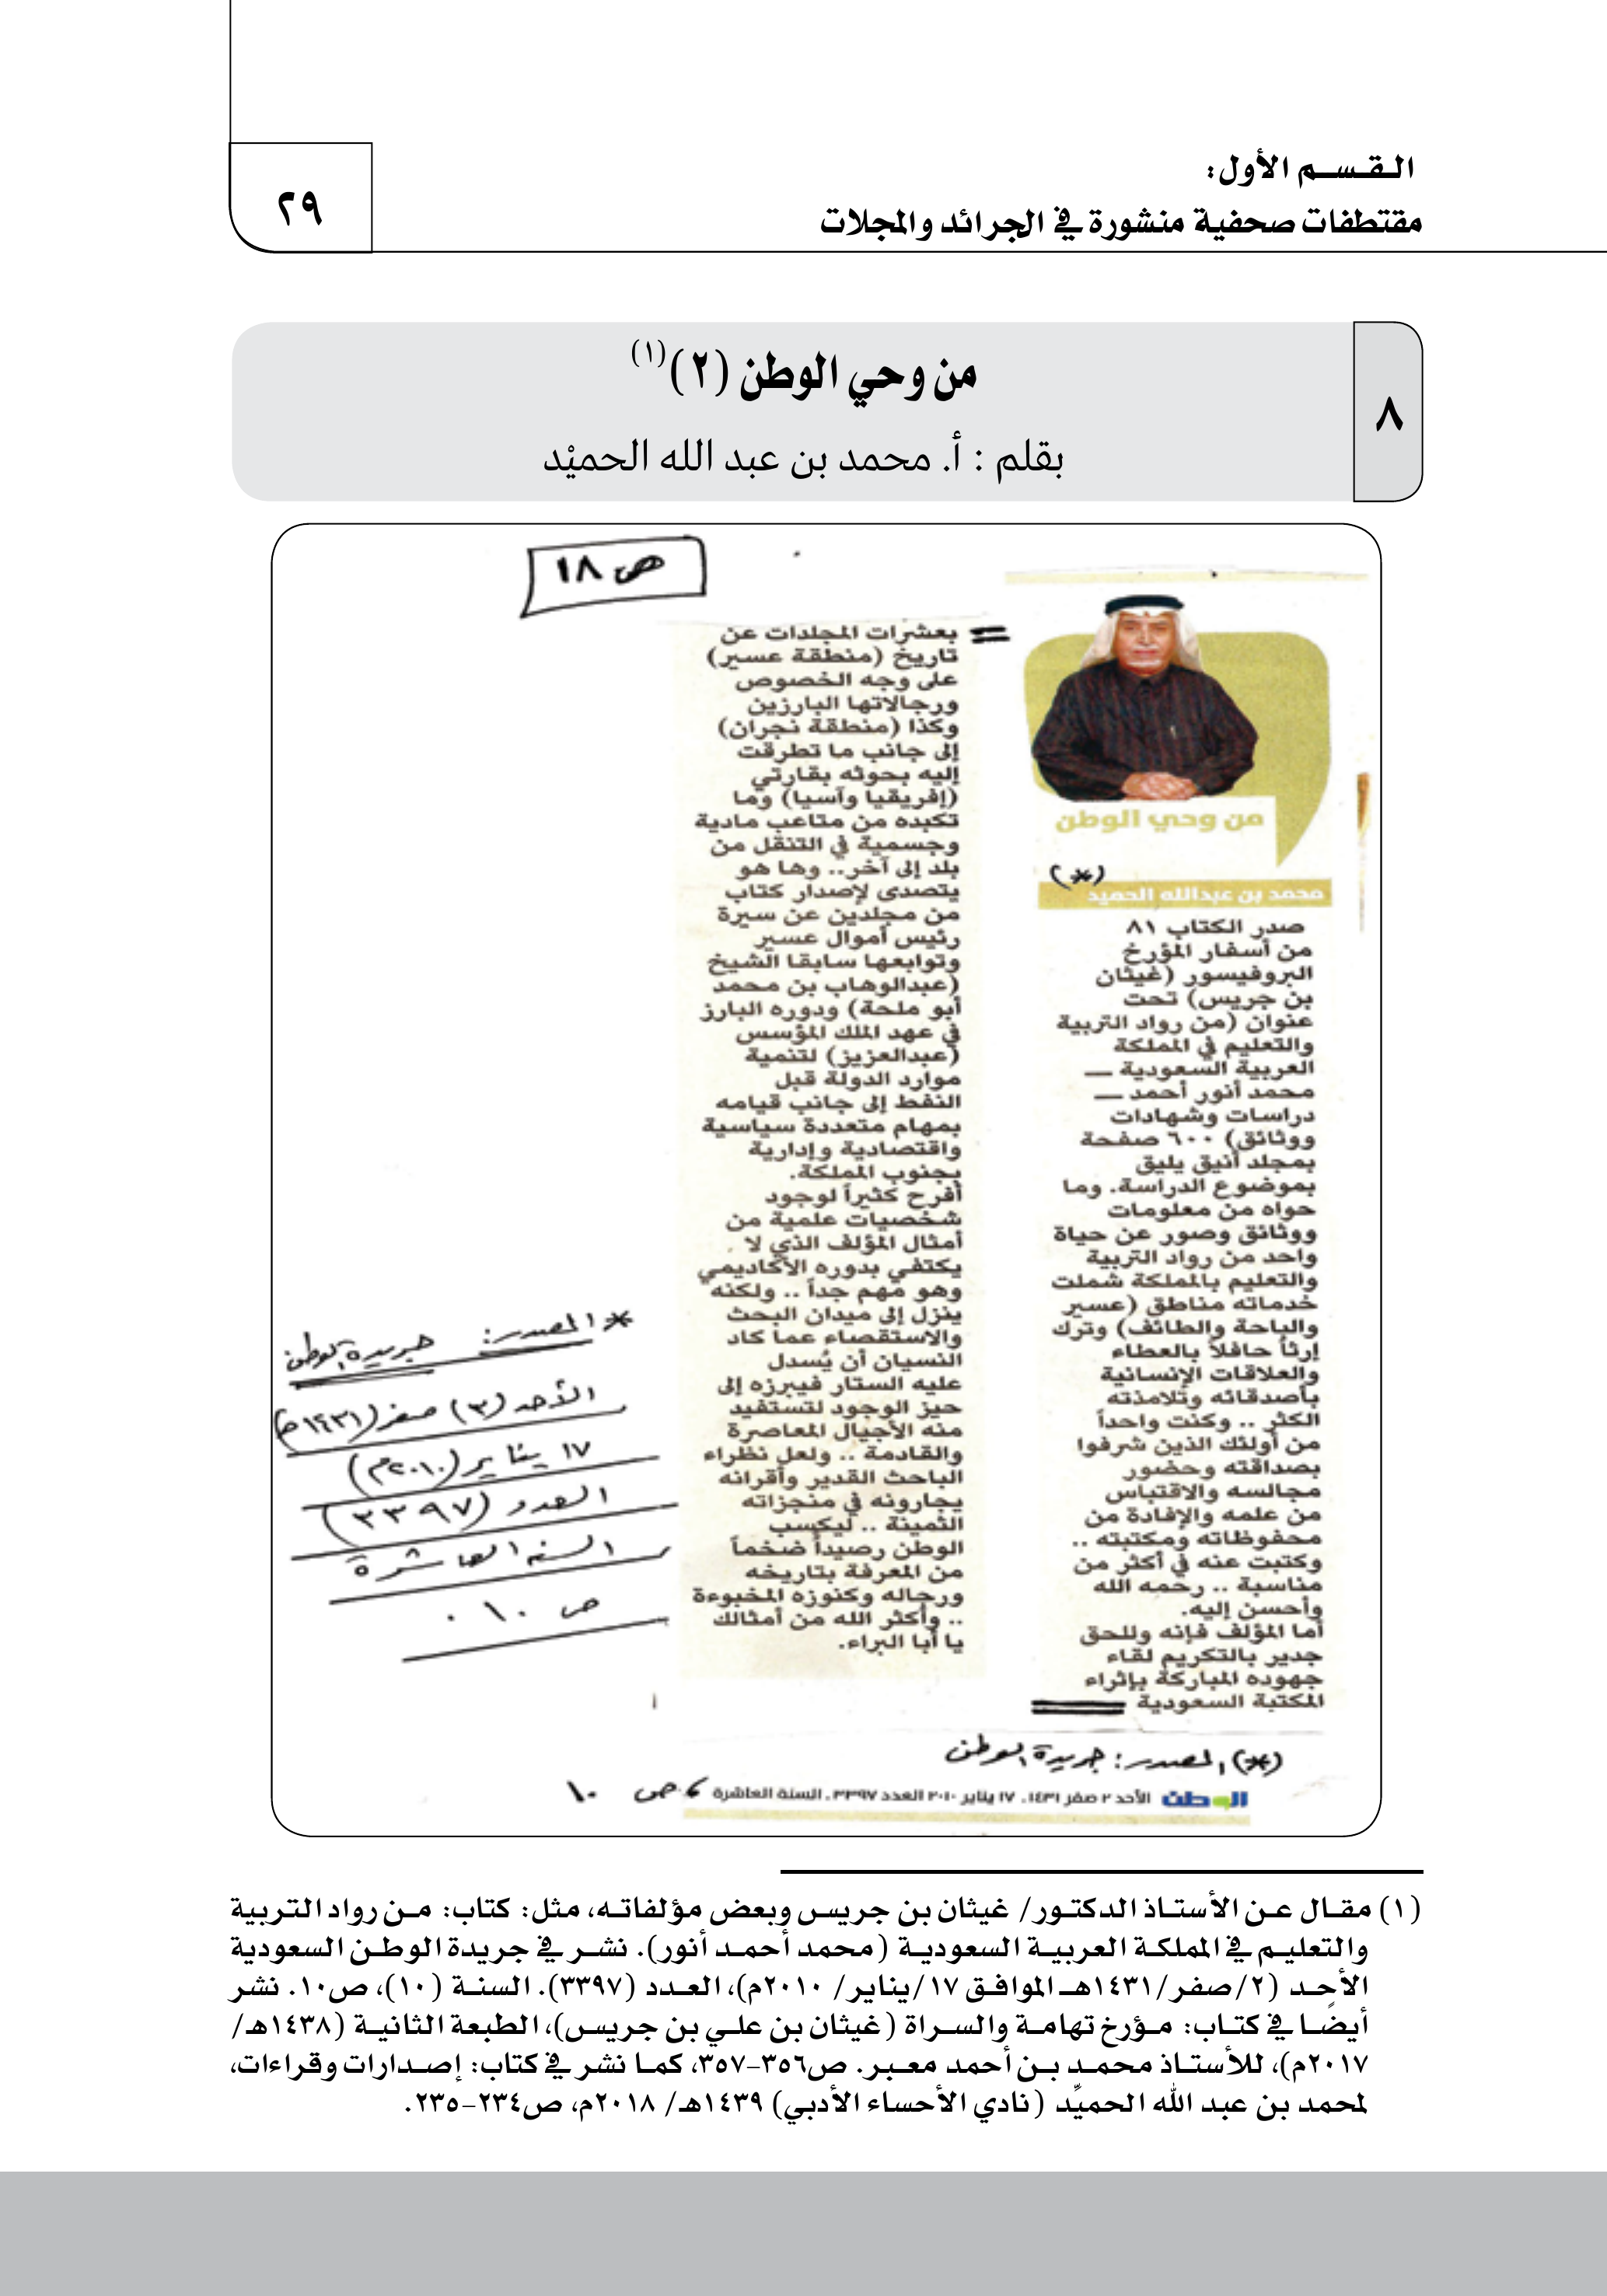 القسم الأول:
مقتطفات صحفية منشورة في الجرائد والمجلات
٢٩
٨
من وحي الوطن (٢)(١)
بقلم : أ. محمد بن عبد الله الحميْد
ص ١٨
من وحي الوطن
(*)
محمد بن عبدالله الحميد
صدر الكتاب ٨١
من أسفار المؤرخ
البروفيسور (غيثان
بن جريس) تحت
عنوان (من رواد التربية
والتعليم في المملكة
العربية السعودية ــ
محمد أنور أحمد ــ
دراسات وشهادات
ووثائق) ٦٠٠ صفحة
بمجلد أنيق يليق
بموضوع الدراسة. وما
حواه من معلومات
ووثائق وصور عن حياة
واحد من رواد التربية
والتعليم بالمملكة شملت
خدماته مناطق (عسير
والباحة والطائف) وترك
إرثاً حافلاً بالعطاء
والعلاقات الإنسانية
بأصدقائه وتلامذته
الكثر .. وكنت واحداً
من أولئك الذين شرفوا
بصداقته وحضور
مجالسه والاقتباس
من علمه والإفادة من
محفوظاته ومكتبته ..
وكتبت عنه في أكثر من
مناسبة .. رحمه الله
وأحسن إليه.
أما المؤلف فإنه وللحق
جدير بالتكريم لقاء
جهوده المباركة بإثراء
المكتبة السعودية
بعشرات المجلدات عن
تاريخ (منطقة عسير)
على وجه الخصوص
ورجالاتها البارزين
وكذا (منطقة نجران)
إلى جانب ما تطرقت
إليه بحوثه بقارتي
(إفريقيا وآسيا) وما
تكبده من متاعب مادية
وجسمية في التنقل من
بلد إلى آخر.. وها هو
يتصدى لإصدار كتاب
من مجلدين عن سيرة
رئيس أموال عسير
وتوابعها سابقا الشيخ
(عبدالوهاب بن محمد
أبو ملحة) ودوره البارز
في عهد الملك المؤسس
(عبدالعزيز) لتنمية
موارد الدولة قبل
النفط إلى جانب قيامه
بمهام متعددة سياسية
واقتصادية وإدارية
بجنوب المملكة.
أفرح كثيراً لوجود
شخصيات علمية من
أمثال المؤلف الذي لا
يكتفي بدوره الأكاديمي
وهو مهم جداً .. ولكنه
ينزل إلى ميدان البحث
والاستقصاء عما كاد
النسيان أن يُسدل
عليه الستار فيبرزه إلى
حيز الوجود لتستفيد
منه الأجيال المعاصرة
والقادمة .. ولعل نظراء
الباحث القدير وأقرانه
يجارونه في منجزاته
الثمينة .. ليكسب
الوطن رصيداً ضخماً
من المعرفة بتاريخه
ورجاله وكنوزه المخبوءة
.. وأكثر الله من أمثالك
يا أبا البراء.
* المصدر: جريدة الوطن
الأحد (٣) صفر (١٤٣١هـ)
١٧ يناير (٢٠١٠م)
العدد (٣٣٩٧)
السنة العاشرة
ص ١٠.
(*) المصدر: جريدة الوطن
الوطن الأحد ٢ صفر ١٤٣١، ١٧ يناير ٢٠١٠ العدد ٣٣٩٧، السنة العاشرة ، ص ١٠
(١) مقال عن الأستاذ الدكتور/ غيثان بن جريس وبعض مؤلفاته، مثل: كتاب: من رواد التربية
والتعليم في المملكة العربية السعودية (محمد أحمد أنور). نشر في جريدة الوطن السعودية
الأحد (٢/صفر/١٤٣١هـ الموافق ١٧/يناير/ ٢٠١٠م)، العدد (٣٣٩٧). السنة (١٠)، ص١٠. نشر
أيضًا في كتاب: مؤرخ تهامة والسراة (غيثان بن علي بن جريس)، الطبعة الثانية (١٤٣٨هـ/
٢٠١٧م)، للأستاذ محمد بن أحمد معبر. ص٣٥٦-٣٥٧، كما نشر في كتاب: إصدارات وقراءات،
لمحمد بن عبد الله الحميِّد (نادي الأحساء الأدبي) ١٤٣٩هـ/ ٢٠١٨م، ص٢٣٤-٢٣٥.